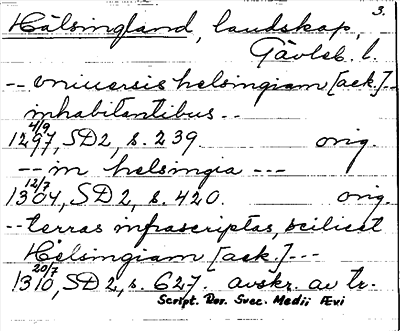 3.
Hälsingland, landskap,
Gävleb. l.
-- vniuersis helsingiam [ack.]--
inhabitantibus --
4/9
1297, SD 2, s. 239 orig.
-- in helsingia ---
12/7
1304, SD 2, s. 420. orig.
-- terras infrascriptas, scilicet
Helsingiam [ack.] ---
20/7
1310, SD 2, s. 627. avskr. av tr.
Script. Rer. Svec. Medii Ævi